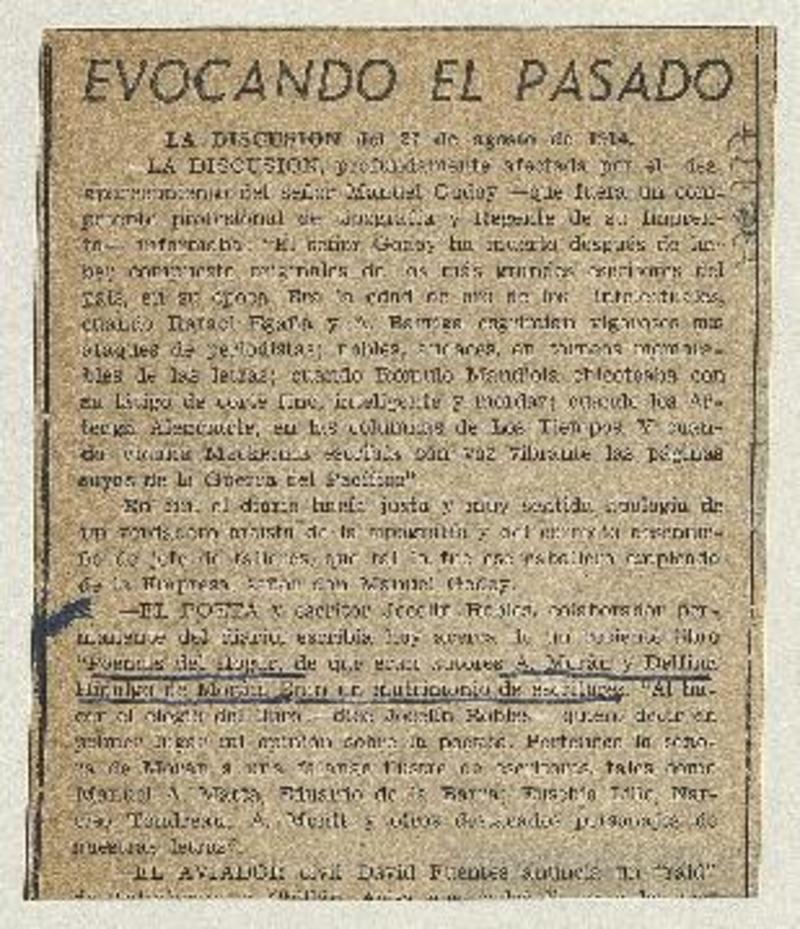 EVOCANDO EL PASADO
LA DISCUSION del 27 de agosto de 1914.
LA DISCUSION, profundamente afectada por el des-
aparecimiento del señor Manuel Godoy —que fuera un com-
petente profesional de tipografía y Regente de su Impren-
ta— informaba: "El señor Godoy ha muerto después de ha-
ber compuesto originales de los más grandes escritores del
país, en su época. Era la edad de oro de los intelectuales,
cuando Rafael Egaña y A. Barros esgrimían vigorosos sus
ataques de periodistas; nobles, audaces, en torneos memora-
bles de las letras; cuando Rómulo Mandiola chicoteaba con
su látigo de corte fino, inteligente y mordaz; cuando los Ar-
teaga Alemparte, en las columnas de Los Tiempos. Y cuan-
do Vicuña Mackenna escribía con voz vibrante las páginas
suyas de la Guerra del Pacífico"
En fin, el diario hacía justa y muy sentida apología de
un verdadero artista de la tipografía y del correcto desempe-
ño de jefe de talleres, que tal lo fue ese caballero empleado
de la Empresa, señor don Manuel Godoy.
—EL POETA y escritor Jocelín Robles, colaborador per-
manente del diario, escribía hoy acerca de un reciente libro
"Poemas del Hogar, de que eran autores A. Morán y Delfina
Hidalgo de Morán. Eran un matrimonio de escritores. "Al ha-
cer el elogio del libro— dice Jocelín Robles— quiero decir en
primer lugar mi opinión sobre la poetisa. Pertenece la seño-
ra de Morán a una falange ilustre de escritores, tales como
Manuel A. Matta, Eduardo de la Barra; Eusebio Lillo, Nar-
ciso Tondreau, A. Montt y otros destacados personajes de
nuestras letras".
—EL AVIADOR civil David Fuentes anuncia un "raid"